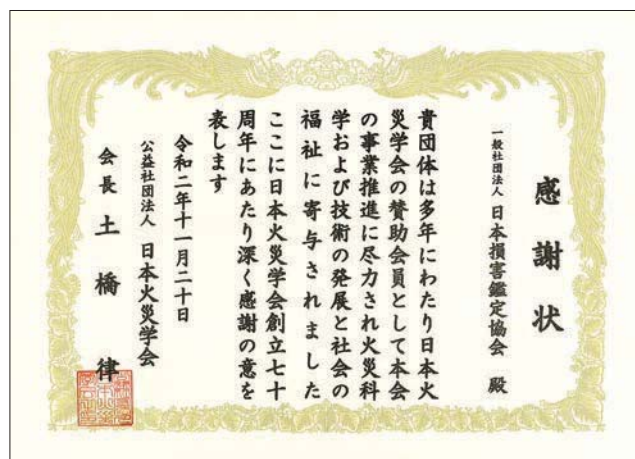 感謝状
一般社団法人 日本損害鑑定協会 殿
貴団体は多年にわたり日本火
災学会の賛助会員として本会
の事業推進に尽力され火災科
学および技術の発展と社会の
福祉に寄与されました
ここに日本火災学会創立七十
周年にあたり深く感謝の意を
表します
令和二年十一月二十日
公益社団法人 日本火災学会
会長 土橋 律